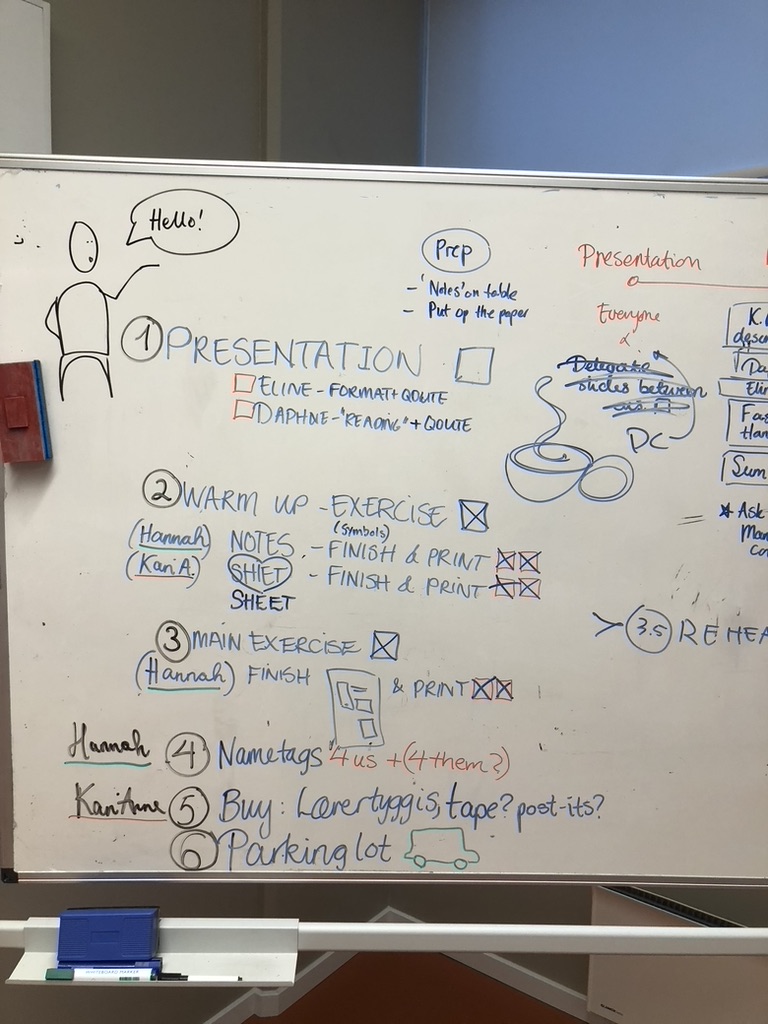 Hello!
Prep
- 'Notes' on table
- Put op the paper
Presentation
Everyone
Delegate
slides between
DC
K.
descr
Da
Elin
Fas
Han
Sum
* Ask
Man
co
① PRESENTATION
ELINE - FORMAT + QOUTE
DAPHNE - "READING" + QOUTE
② WARM UP - EXERCISE
(Symbols)
(Hannah) NOTES - FINISH & PRINT
(Kari A.) SHIET - FINISH & PRINT
SHEET
③ MAIN EXERCISE
(Hannah) FINISH & PRINT
> 3.5 REHEA
Hannah ④ Nametags 4 us + (4 them?)
Kari Anne ⑤ Buy: Lærertyggis, tape? post-its?
⑥ Parking lot
WHITEBOARD MARKER